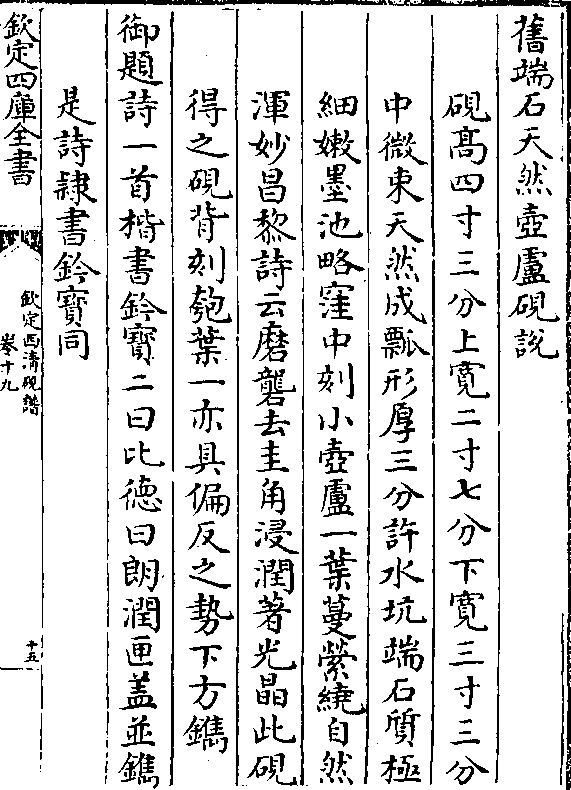 舊端石天然壺盧硯說
硯髙四寸三分上寛二寸七分下寛三寸三分
中微束天然成瓢形厚三分許水坑端石質極
細嫩墨池略窪中刻小壺盧一葉蔓縈繞自然
渾妙昌黎詩云磨礱去圭角浸潤著光晶此硯
得之硯背刻匏葉一亦具偏反之勢下方鐫
御題詩一首楷書鈐寶二曰比德曰朗潤匣盖並鐫
是詩隷書鈐寶同
欽定四庫全書
欽定西清硯譜
卷十九
十五